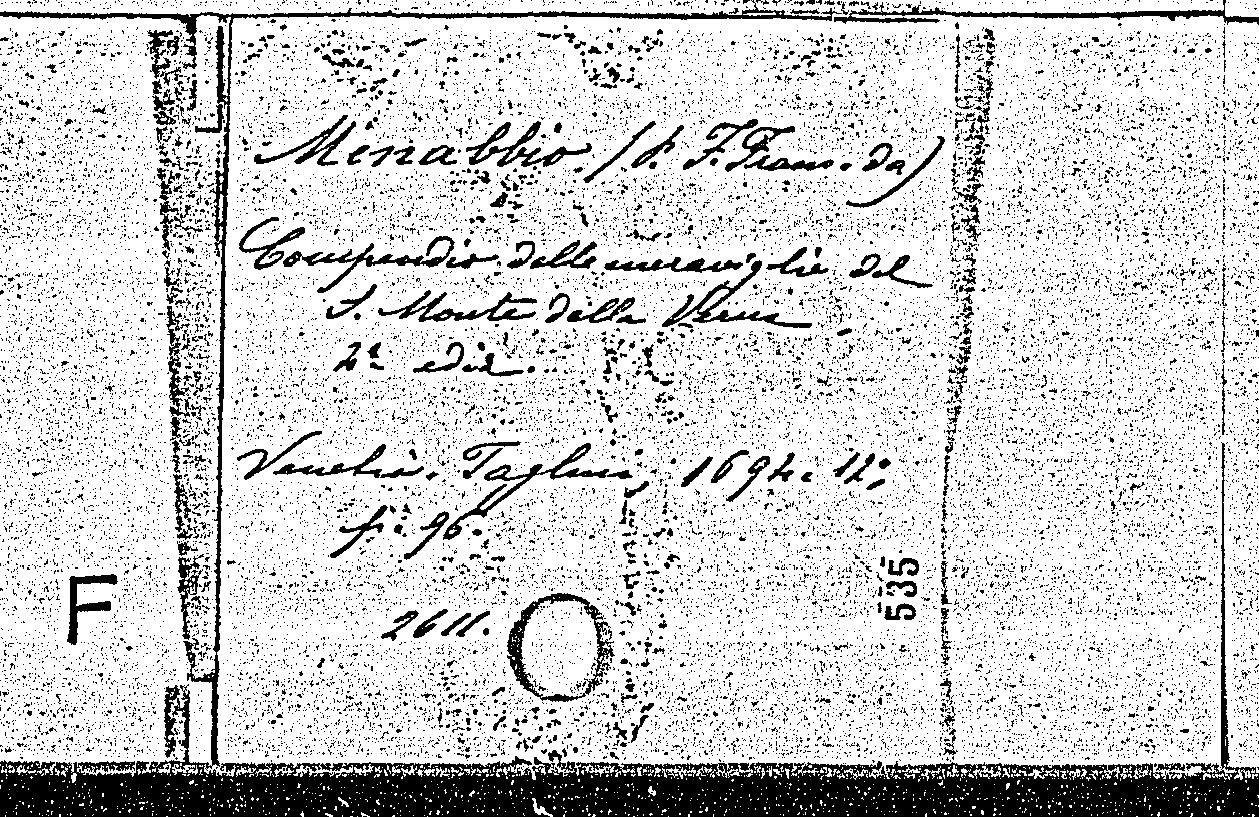 Menabbio, (d. F. Franc. da)
Compendio delle meraviglie del
S. Monte della Verna
2ª ediz.
Venetia, Tagliani, 1694. 12°,
p. 96.
2611.
535
F